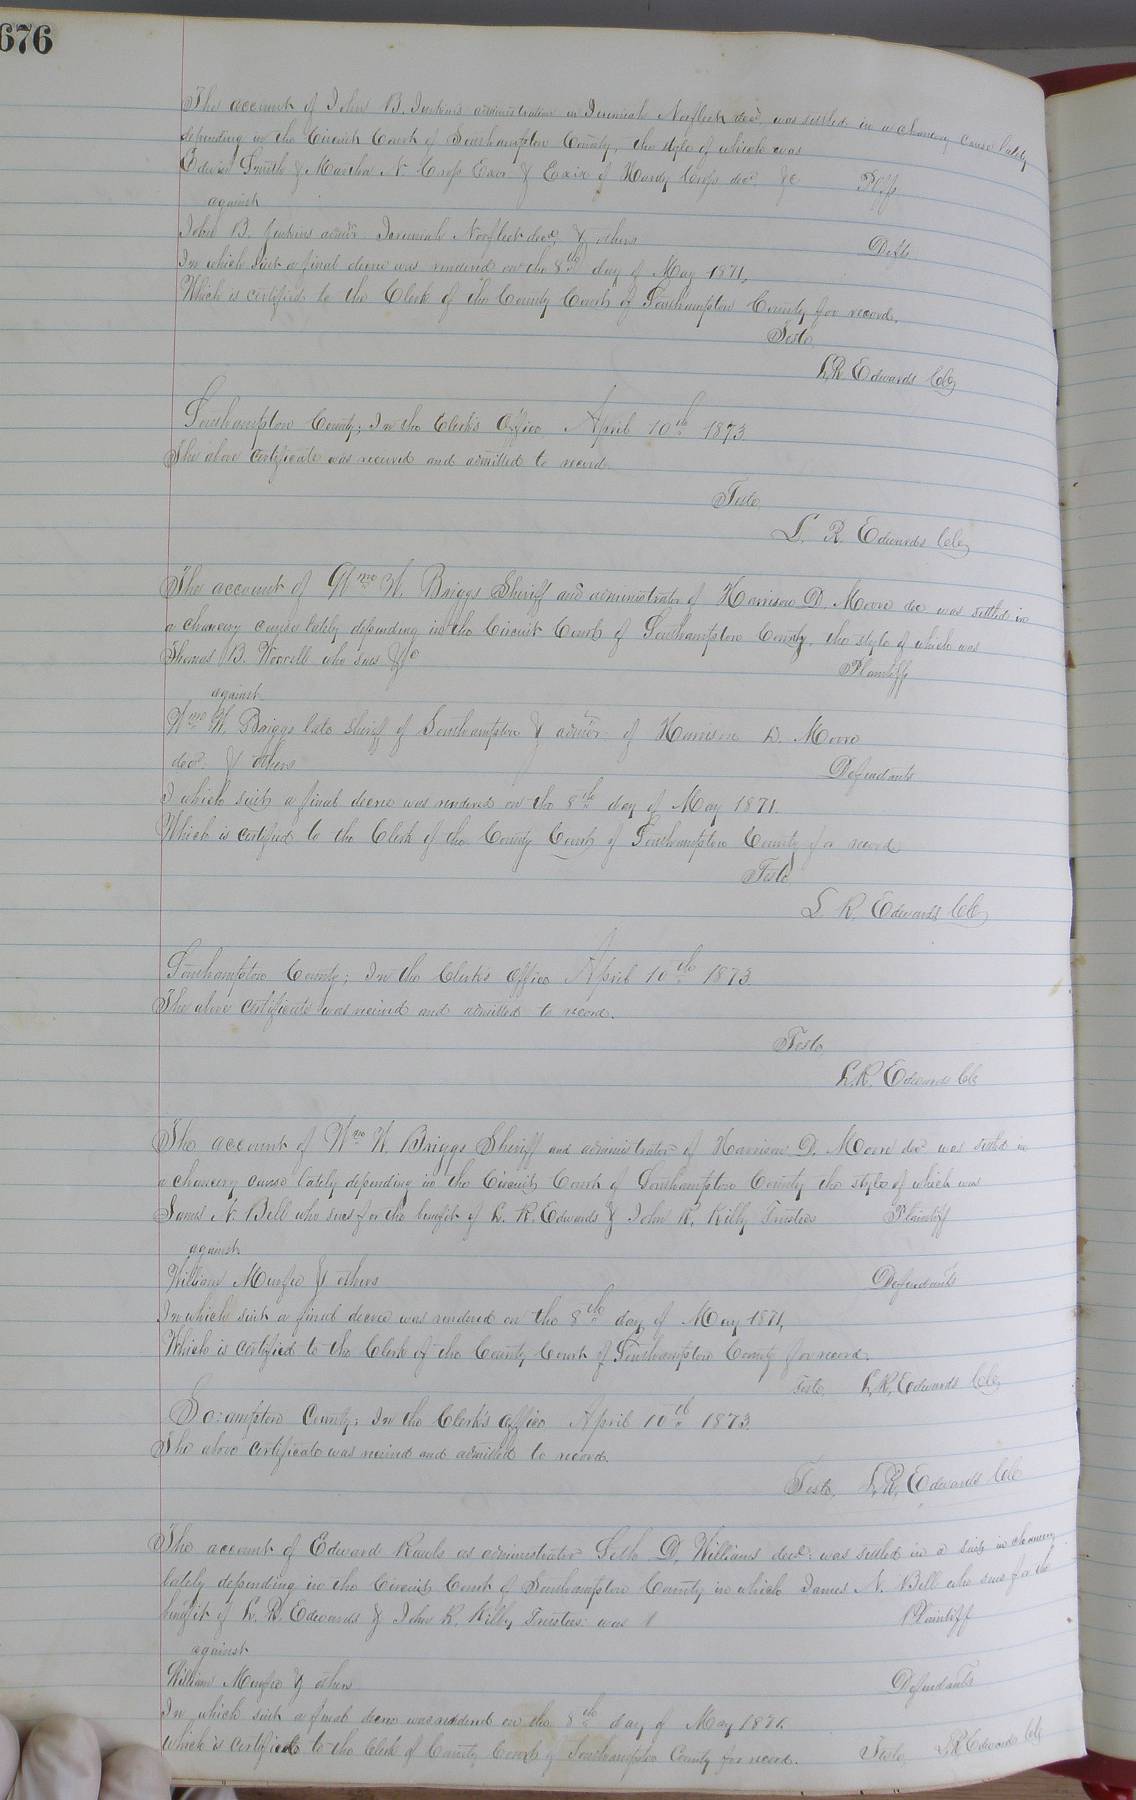 676
The account of John B. Jenkins administration on Jeremiah Norfleet decd, was settled in a chancery cause lately
depending in the Circuit Court of Southampton County, the style of which was
Edwin Smith & Martha N Crofs Exor & Exix of Hardy Crofs decd &c Plffs
against
John B. Jenkins admr Jeremiah Norfleet decd, & others Defts
In which suit a final decree was rendered on the 8th day of May 1871,
Which is certified to the Clerk of the County Court of Southampton County for record.
Teste,
L,R Edwards Clk
Southampton County; In the Clerk's Office April 10th 1873.
The above certificate was received and admitted to record.
Teste,
L. R. Edwards Clk
The account of Wm W. Briggs Sheriff and administrator of Harrison D. Moore dec was settled in
a chancery cause lately depending in the Circuit Court of Southampton County, the style of which was
Thomas B. Worrell who sues &c Plaintiff
against
Wm W. Briggs late Sheriff of Southampton & admr of Harrison D. Moore
decd & others Defendants
I which suit a final decree was rendered on the 8th day of May 1871.
Which is certified to the Clerk of the County Court of Southampton County for record
Teste,
L R, Edwards Clk
Southampton County; In the Clerks Office April 10th 1873.
The above certificate was received and admitted to record.
Teste,
L.R. Edwards Clk
The account of Wm W Briggs Sheriff and administrator of Harrison D. Moore decd was settled in
a chancery cause lately depending in the Circuit Court of Southampton County the style of which was
James N. Bell who sues for the benefit of L. R. Edwards & John R. Kilby Trustees Plaintiff
against
William & others Defendants
In which suit a final decree was rendered on the 8th day of May 1871,
Which is certified to the Clerk of the County Court of Southampton County for record.
Teste, L,R, Edwards Clk
So:ampton County; In the Clerk's Office April 10th 1873.
The above certificate was received and admitted to record.
Teste, L,R, Edwards Clk
The account of Edward Rawls as administrator Seth D, Williams decd: was settled in a suit in chancery
lately depending in the Circuit Court of Southampton County in which James N. Bell who sues for the
benefit of L. R. Edwards & John R. Kilby Trustees: was Plaintiff
against
William & others Defendants
In which suit a final decree was rendered on the 8th day of May 1871.
Which is certified to the Clerk of County Court of Southampton County for record. Teste, L,R Edwards Clk